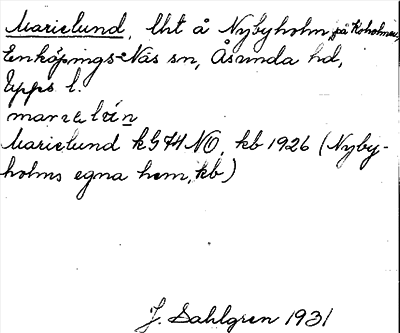 Marielund, lht å Nybyholm på Koholmen,
Enköpings-Näs sn, Åsunda hd,
Upps l.
Marielund kG 74 NO, kb 1926 (Nyby-
holms egna hem, kb)
J. Sahlgren 1931